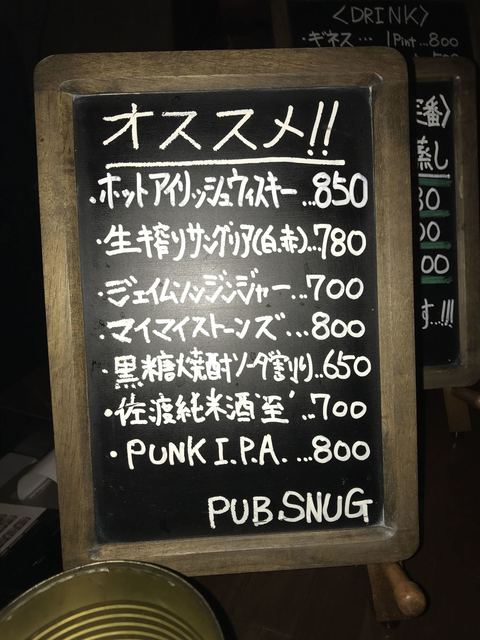 オススメ!!
・ホットアイリッシュウィスキー...850
・生搾りサングリア(白.赤)...780
・ジェイムソンジンジャー...700
・マイマイストーンズ...800
・黒糖焼酎ソーダ割り...650
・佐渡純米酒"至"...700
・PUNK I.P.A. ...800
PUB.SNUG
〈DRINK〉
・ギネス… 1Pint...800
番〉
蒸し
30
00
00
す...!!!